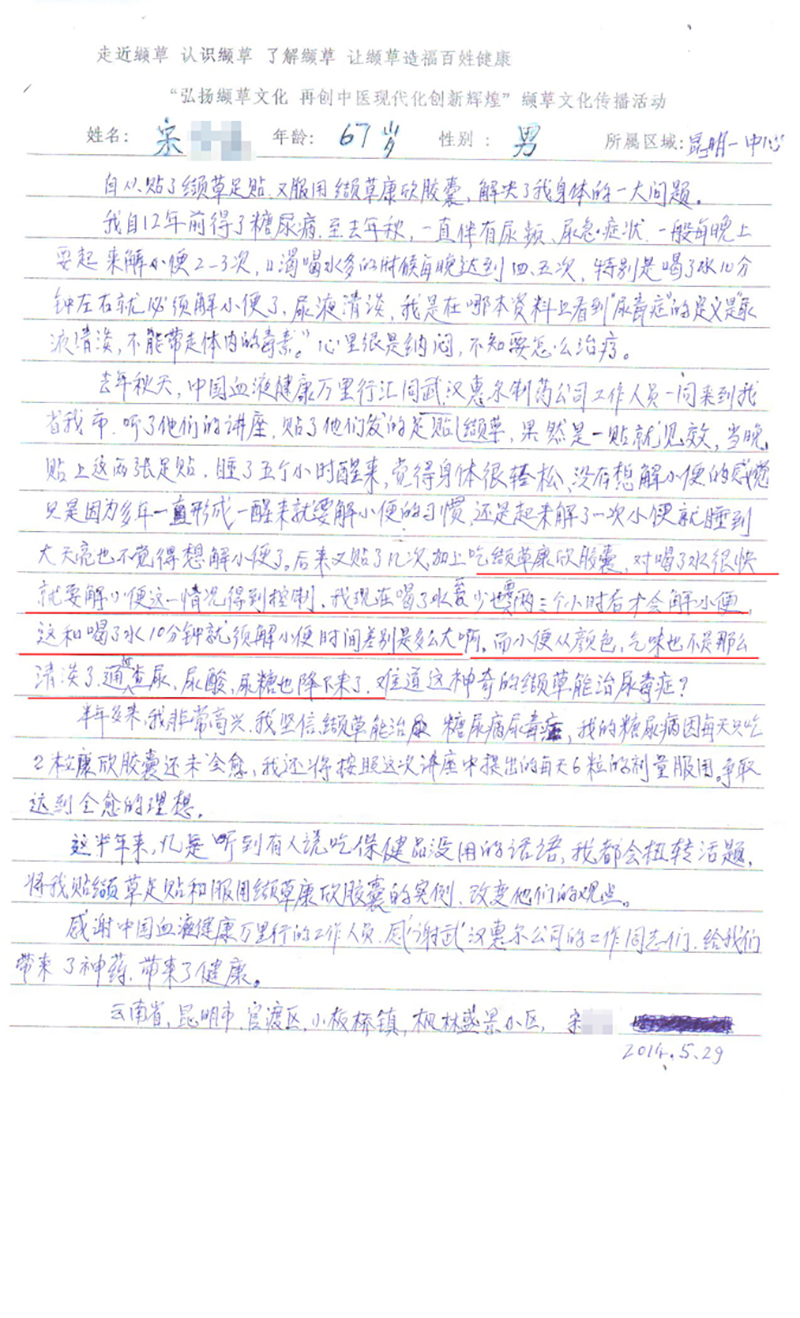 走近缬草 认识缬草 了解缬草 让缬草造福百姓健康
“弘扬缬草文化 再创中医现代化创新辉煌”缬草文化传播活动
姓名: 宋 年龄: 67岁 性别: 男 所属区域: 昆明一中心
自从贴了缬草足贴.又服用缬草康欣胶囊,解决了我身体的一大问题。
我自12年前得了糖尿病.至去年秋,一直伴有尿频、尿急症状.一般每晚上
要起来解小便2-3次,口渴喝水多的时候每晚达到四、五次,特别是喝了水10分
钟左右就必须解小便了,尿液清淡,我是在哪本资料上看到“尿毒症”的定义是“尿
液清淡,不能带走体内的毒素。”心里很是纳闷,不知要怎么治疗。
去年秋天,中国血液健康万里行汇同武汉惠尔制药公司工作人员一同来到我
省我市.听了他们的讲座,贴了他们发的足贴缬草,果然是一贴就见效,当晚
贴上这两张足贴.睡了五个小时醒来,觉得身体很轻松、没有想解小便的感觉
只是因为多年一直形成一醒来就要解小便的习惯,还是起来解了一次小便就睡到
大天亮也不觉得想解小便了。后来又贴了几次,加上吃缬草康欣胶囊,对喝了水很快
就要解小便这一情况得到控制,我现在喝了水多少也要两三个小时后才会解小便,
这和喝了水10分钟就须解小便时间差别是多么大啊。而小便从颜色,气味也不是那么
清淡了.通查尿、尿酸,尿糖也降下来了,难道这神奇的缬草能治尿毒症?
半年多来,我非常高兴.我坚信缬草能治 糖尿病尿毒症,我的糖尿病因每天只吃
2粒康欣胶囊还未全愈,我还将按照这次讲座中提出的每天6粒的剂量服用。争取
达到全愈的理想。
这半年来,凡是听到有人说吃保健品没用的话语,我都会扭转话题,
将我贴缬草足贴和服用缬草康欣胶囊的实例.改变他们的观点。
感谢中国血液健康万里行的工作人员.感谢武汉惠尔公司的工作同志们,给我们
带来了神药,带来了健康。
云南省,昆明市.官渡区,小板桥镇,枫林盛景小区, 宋
2014.5.29